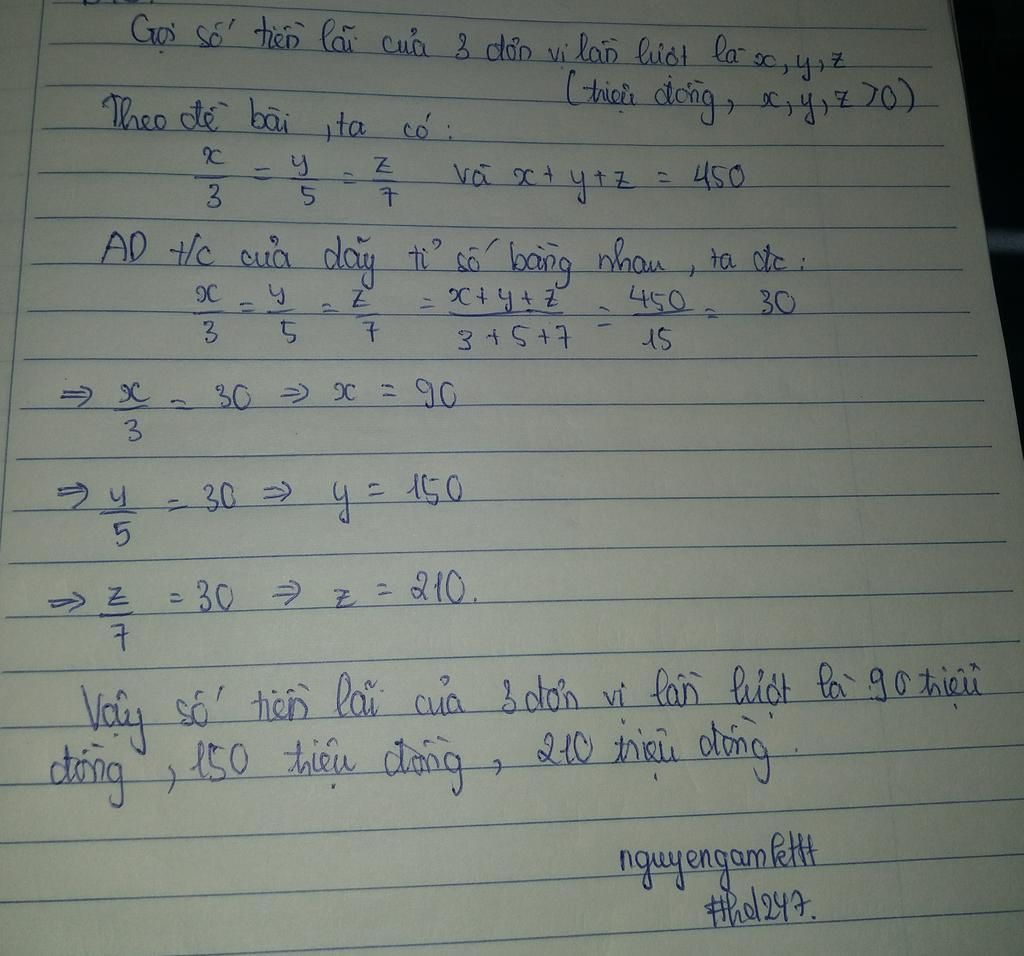 Gọi số tiền lãi của 3 đơn vị lần lượt là x, y, z
(triệu đồng, x, y, z >0)
Theo đề bài, ta có:
x/3 = y/5 = z/7 và x + y + z = 450
AD t/c của dãy tỉ số bằng nhau, ta đc:
x/3 = y/5 = z/7 = x + y + z/3 + 5 + 7 = 450/15 = 30
⇒ x/3 = 30 ⇒ x = 90
⇒ y/5 = 30 ⇒ y = 150
⇒ z/7 = 30 ⇒ z = 210.
Vậy số tiền lãi của 3 đơn vị lần lượt là 90 triệu
đồng, 150 triệu đồng, 210 triệu đồng.
#hd247.